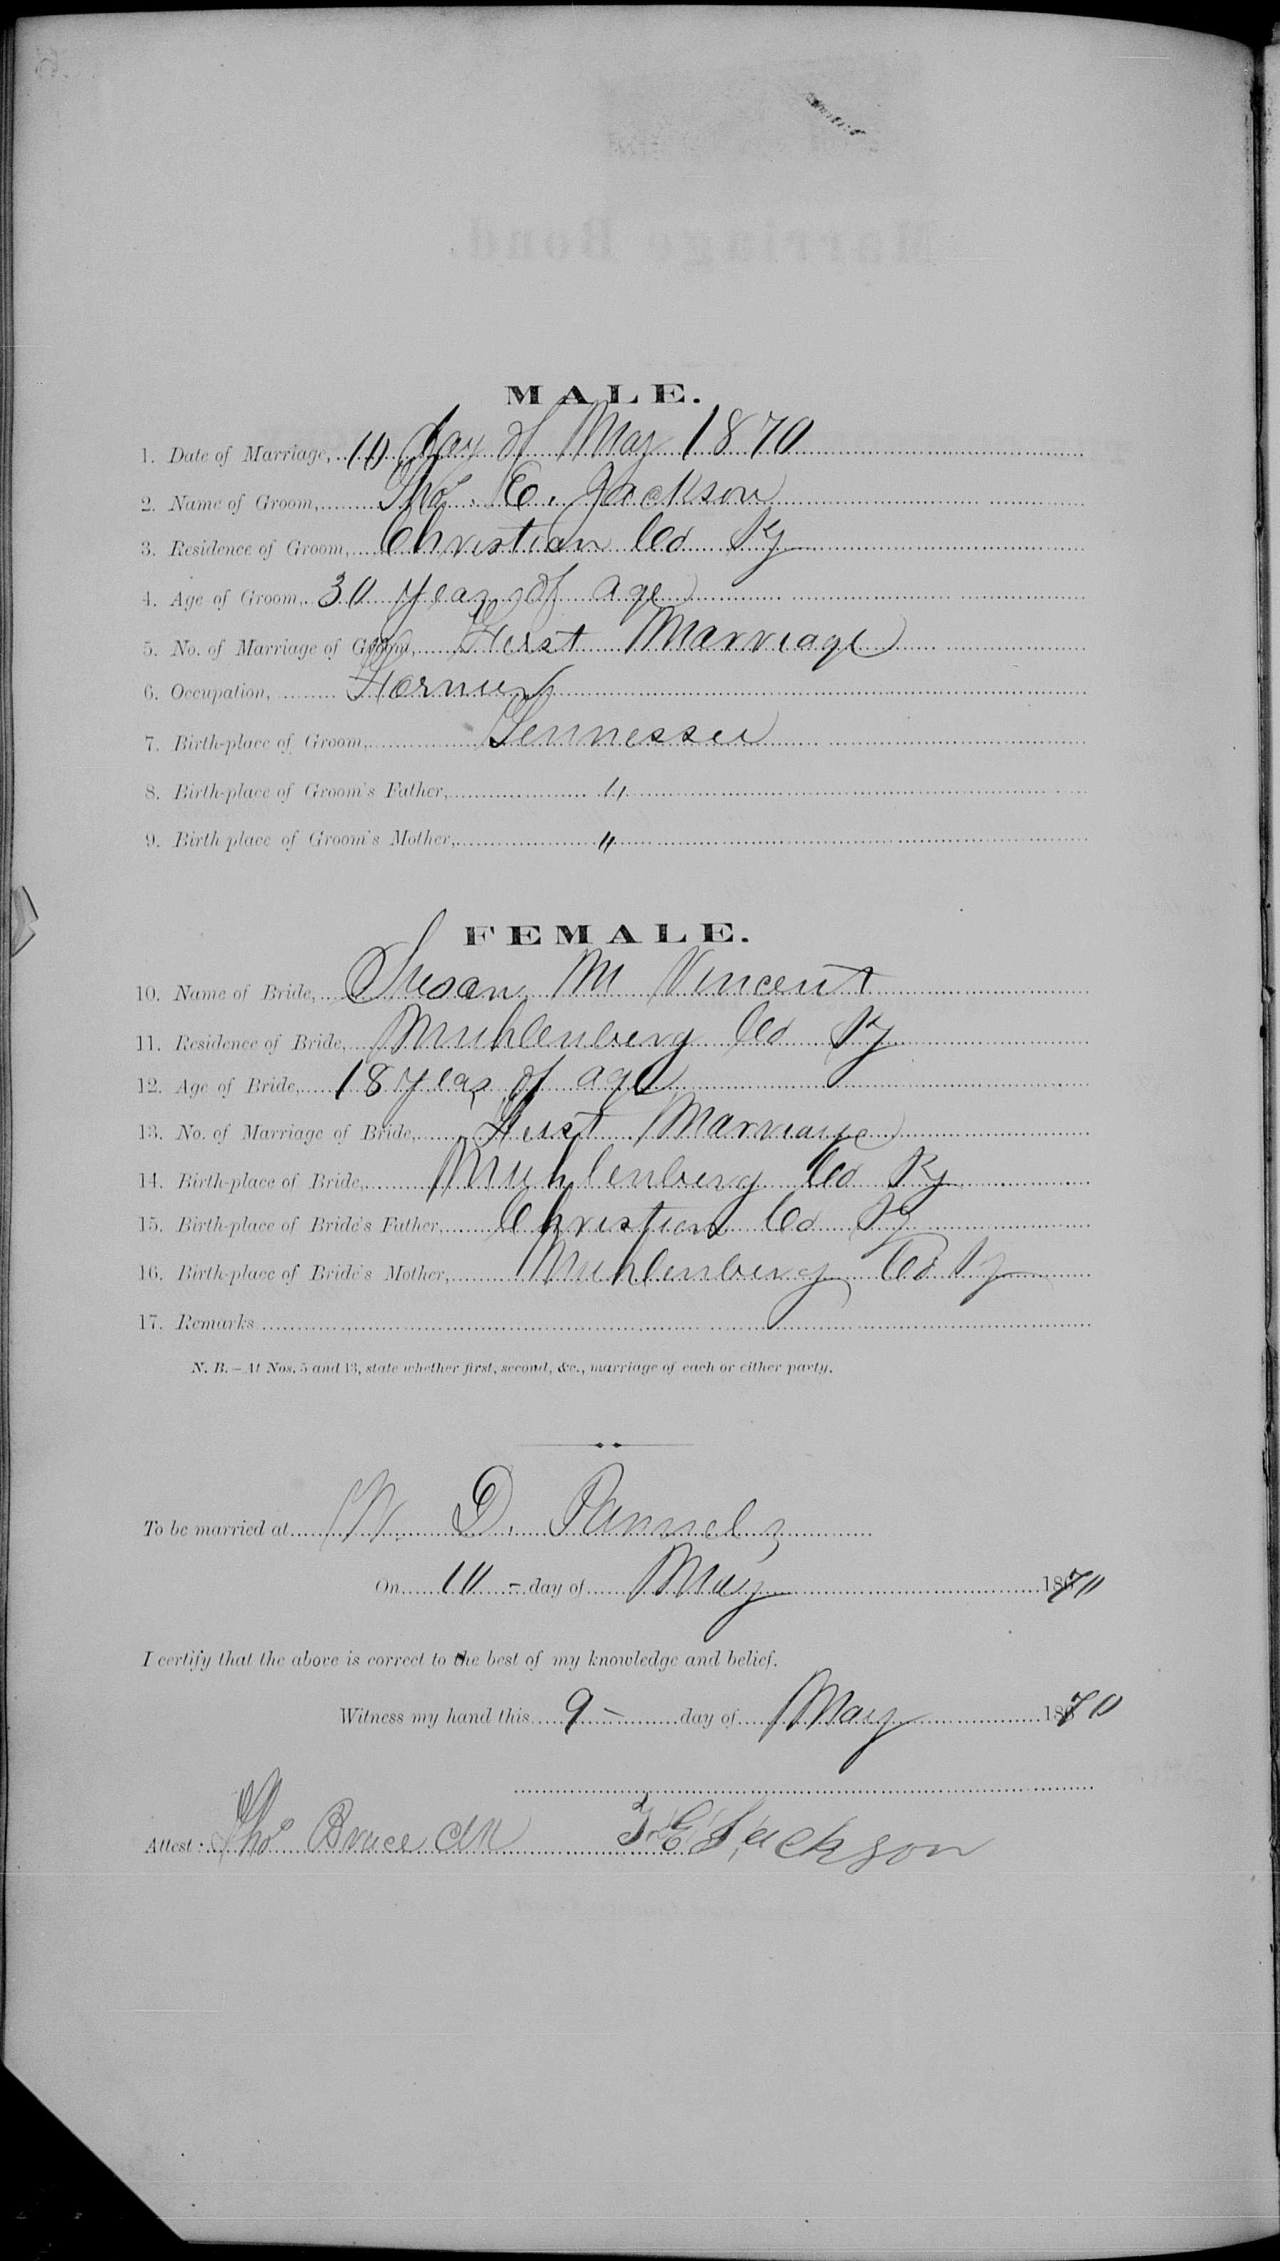 MALE.
1. Date of Marriage, 10 day of May 1870
2. Name of Groom, Thos. E. Jackson
3. Residence of Groom, Christian Co Ky
4. Age of Groom, 30 years of age
5. No. of Marriage of Groom, First Marriage
6. Occupation, Farmer
7. Birth-place of Groom, Tennessee
8. Birth-place of Groom's Father, "
9. Birth place of Groom's Mother, "
FEMALE.
10. Name of Bride, Susan M Vincent
11. Residence of Bride, Muhlenberg Co Ky
12. Age of Bride, 18 years of age
13. No. of Marriage of Bride, First Marriage
14. Birth-place of Bride, Muhlenberg Co Ky
15. Birth-place of Bride's Father, Christian Co Ky
16. Birth-place of Bride's Mother, Muhlenberg Co Ky
17. Remarks
N. B.—At Nos. 5 and 13, state whether first, second, &c., marriage of each or either party.
To be married at W. D.
On 10 - day of May 1870
I certify that the above is correct to the best of my knowledge and belief.
Witness my hand this 9 - day of May 1870
Attest: Thos Bruce Clk T. E. Jackson